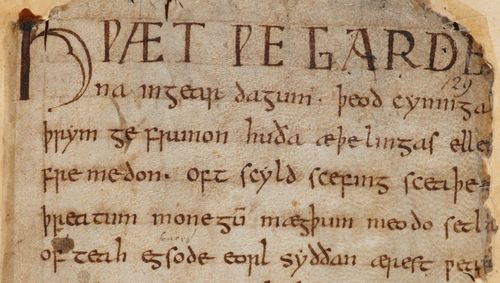 HǷÆT ǷE GARDE
na ingear dagum · þeod cyninga
þrym ge frunon huða æþelingas elle
fre medon · oft scyld scefing sceaþe
þreatum monegū mægþum meodo setla
of teah egsode eorl syððan ærest
129